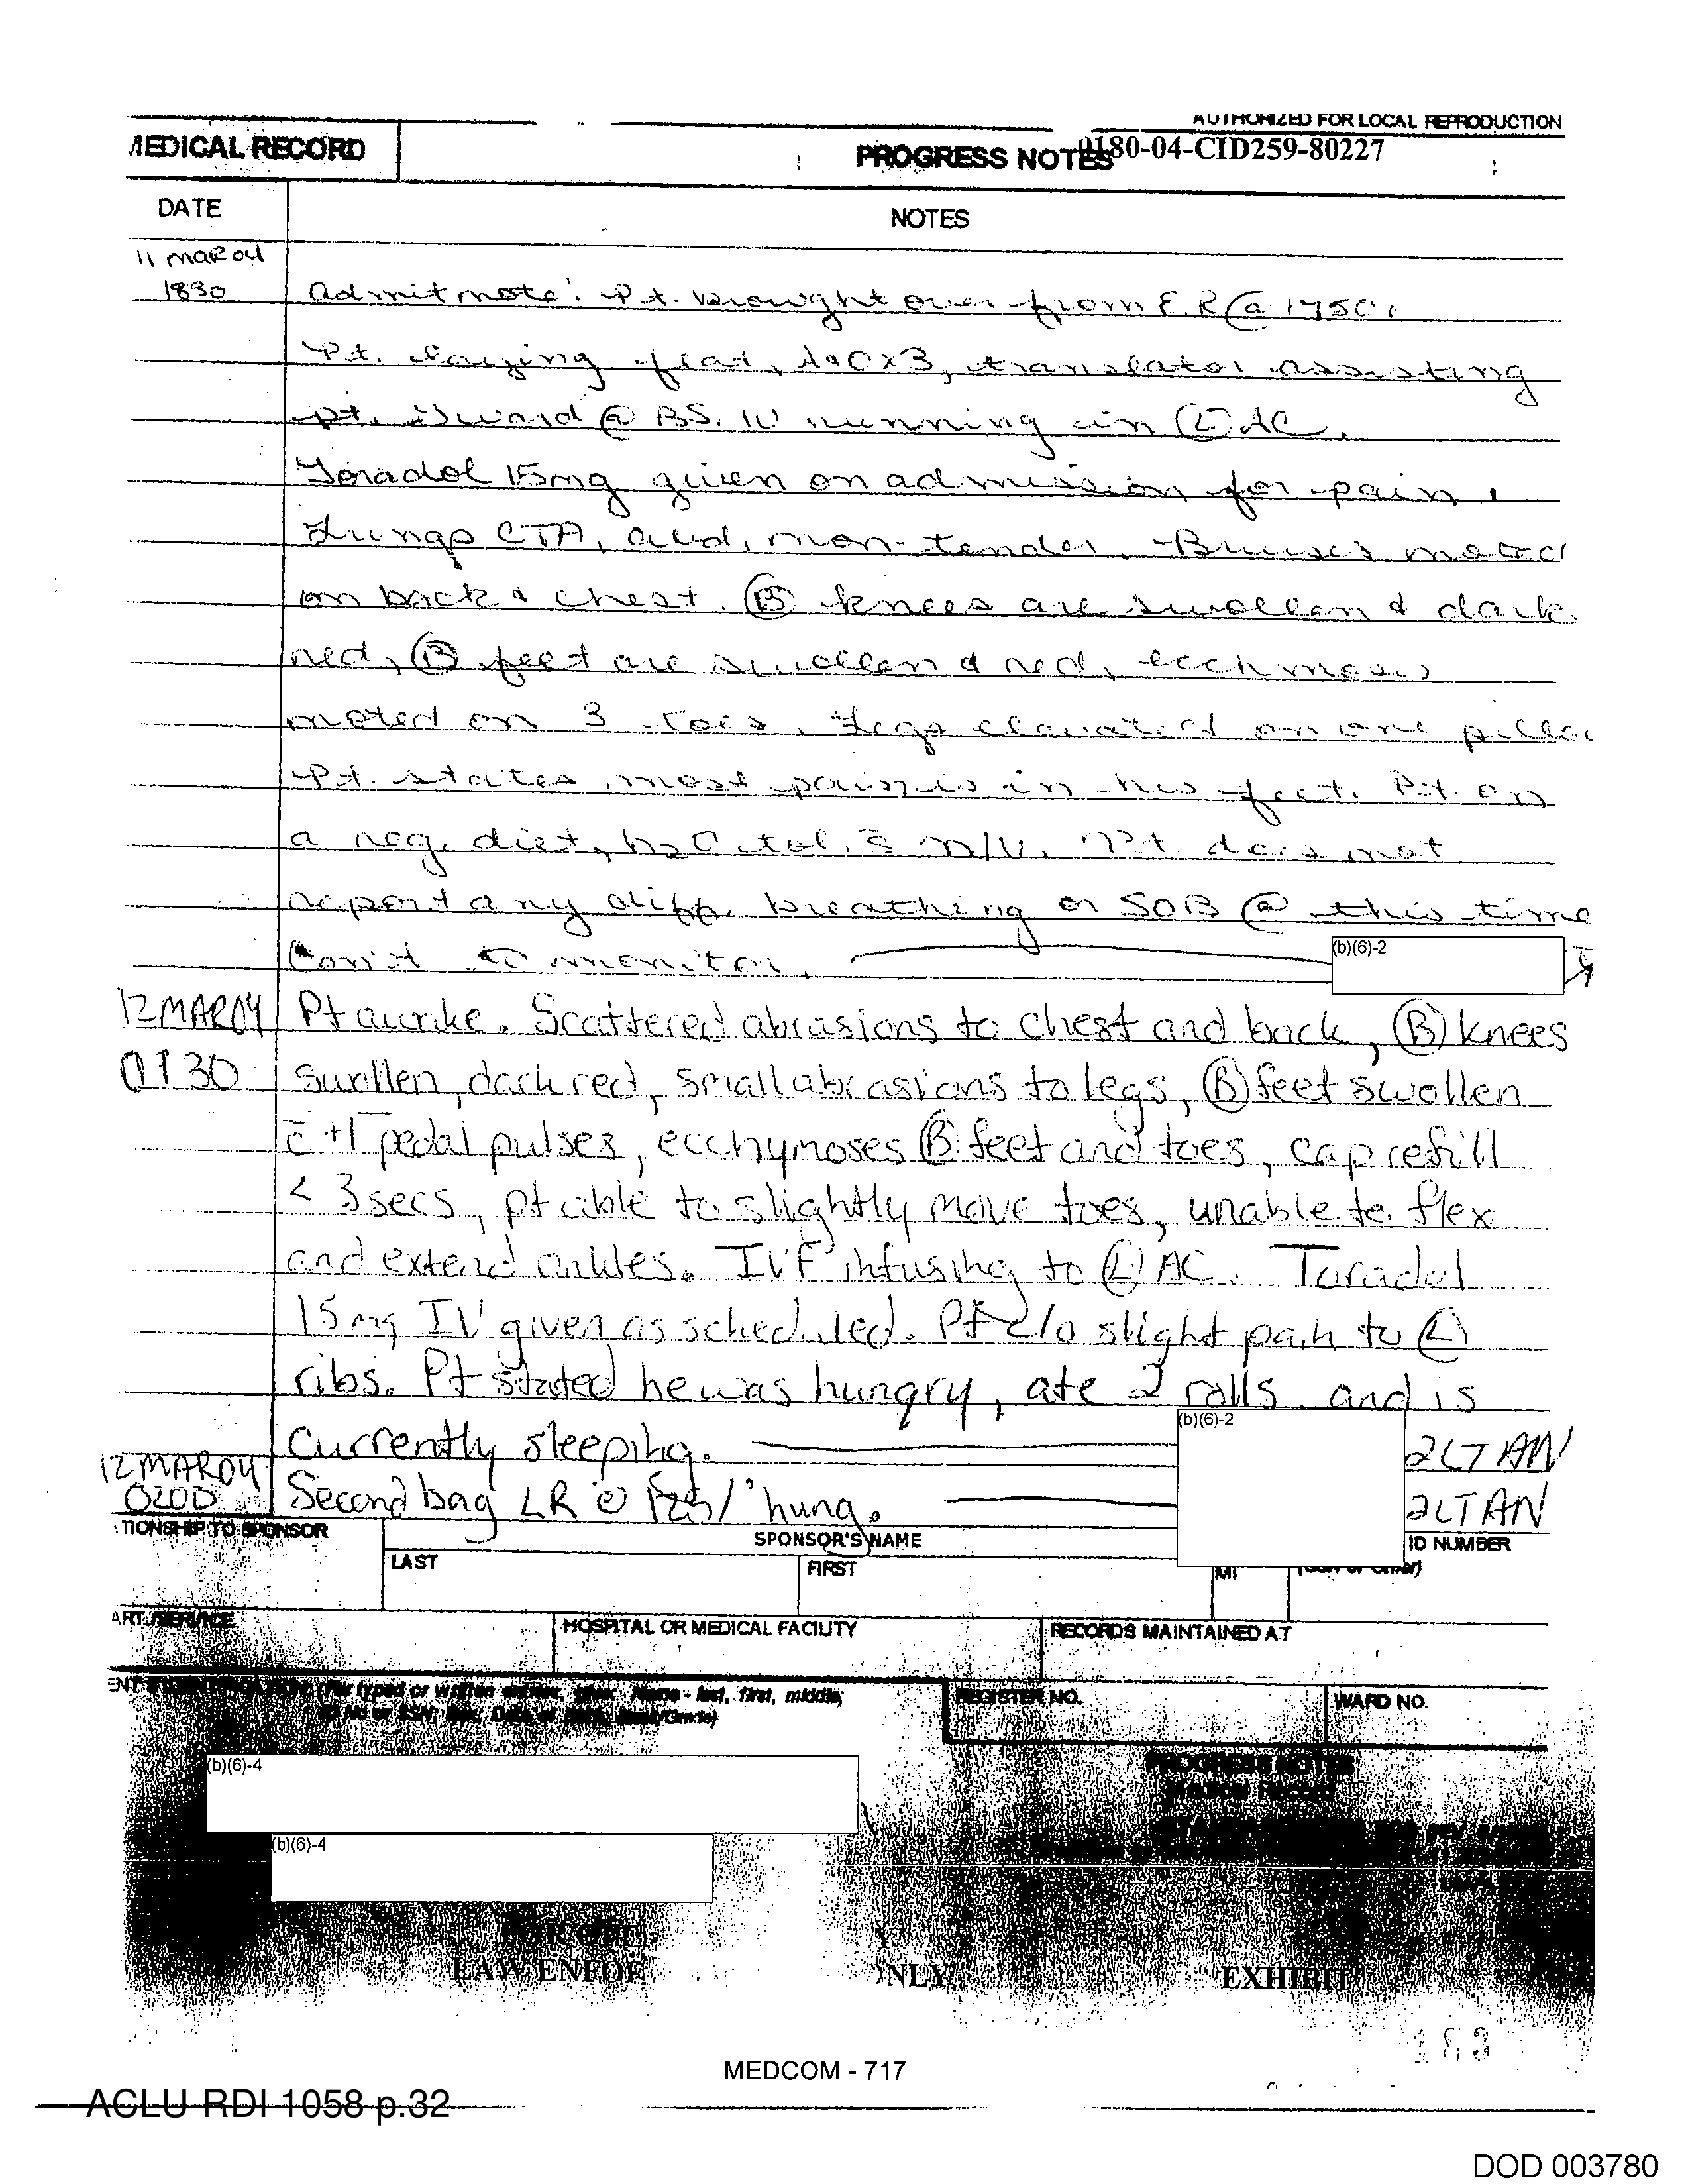 AUTHORIZED FOR LOCAL REPRODUCTION
MEDICAL RECORD
PROGRESS NOTES
0180-04-CID259-80227
DATE
NOTES
11 MAR 04
1830
Admit note: Pt. brought over from E.R @ 1750.
Pt. laying flat, A&Ox3, translator assisting
pt. Guard @ BS. IV running in (L) AC.
Toradol 15mg given on admission for pain.
Lungs CTA, abd. non-tender. Bruises noted
on back & chest. (B) knees are swollen & dark
red, (B) feet are swollen & red, ecchymosis
noted on 3 toes. Legs elevated on one pillow
Pt. states most pain is in his feet. Pt on
a reg. diet, h2O tol. s̄ N/V. Pt does not
report any diff. breathing or SOB @ this time
Con't to monitor.
(b)(6)-2
12MAR04
0130
Pt awake. Scattered abrasions to chest and back, (B) knees
swollen, dark red, small abrasions to legs, (B) feet swollen
c̄ +1 pedal pulses, ecchymoses (B) feet and toes, cap refill
< 3secs, pt able to slightly move toes, unable to flex
and extend ankles. IVF infusing to (L) AC. Toradol
15mg IV given as scheduled. Pt c/o slight pain to (L)
ribs. Pt stated he was hungry, ate 2 rolls and is
currently sleeping.
(b)(6)-2
2LT AN
12MAR04
0200
Second bag LR @ hung.
2LT AN
TIONSHIP TO SPONSOR
SPONSOR'S NAME
ID NUMBER
LAST
FIRST
MI
(SSN or Other)
ART./SERVICE
HOSPITAL OR MEDICAL FACILITY
RECORDS MAINTAINED AT
(For typed or written entries, give: Name - last, first, middle;
REGISTER NO.
WARD NO.
(b)(6)-4
PROGRESS NOTES
Medical Record
(b)(6)-4
LAW ENFOR
ONLY
EXHIBIT
183
MEDCOM - 717
ACLU RDI 1058 p.32
DOD 003780